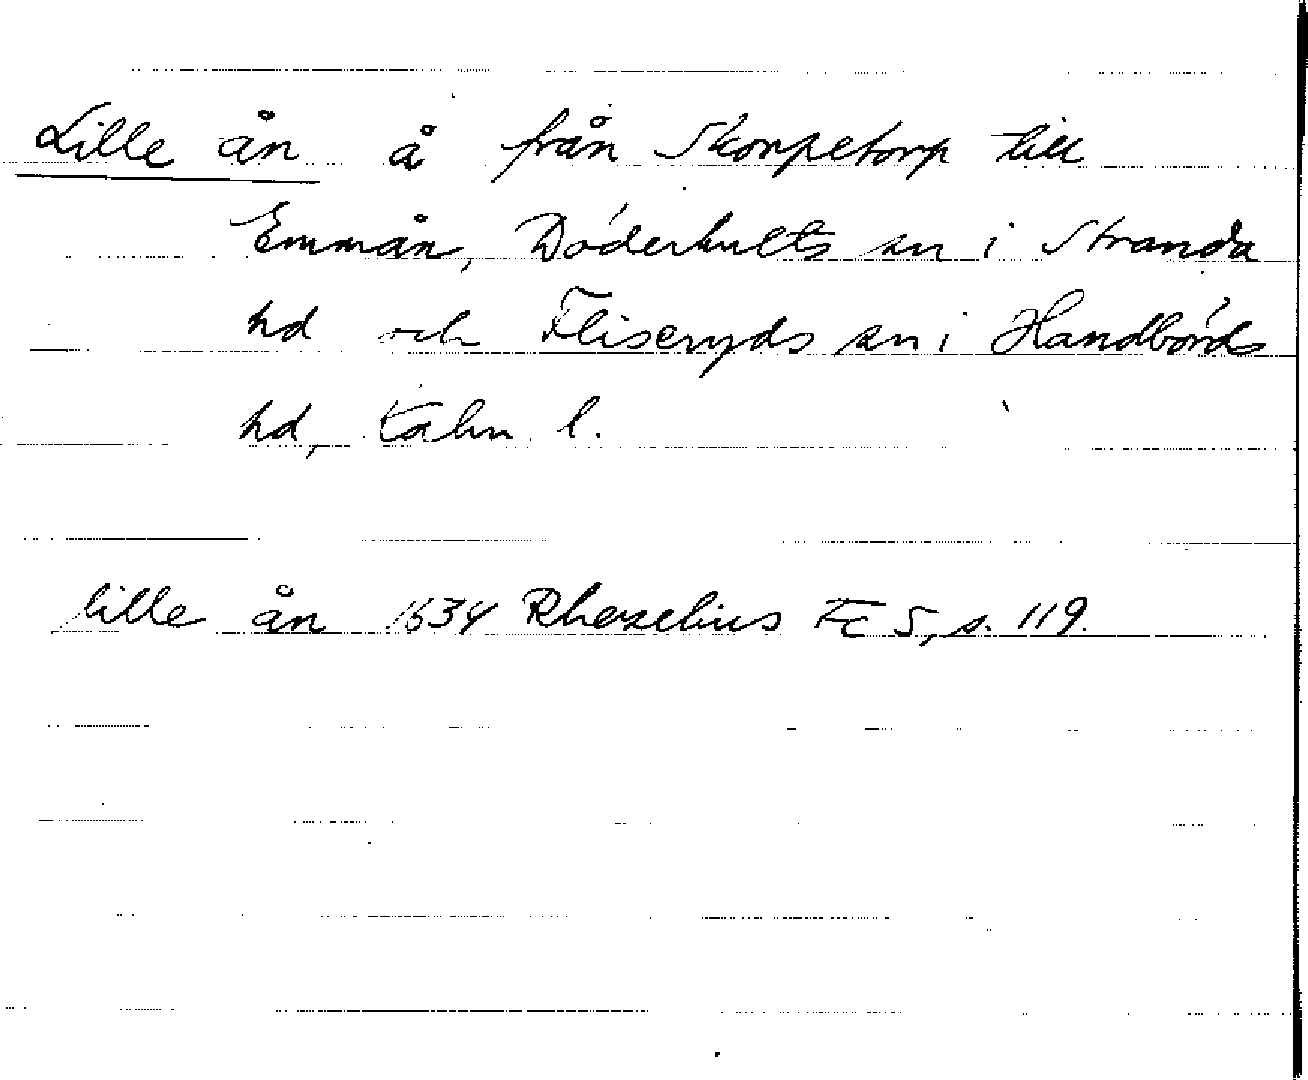 Lille ån å från Skorpetorp till
Emmån, Döderhults sn i Stranda
hd och Fliseryds sn i Handbörds
hd, Kalm l.
lille ån 1634 Rhezelius Fc 5, s. 119.